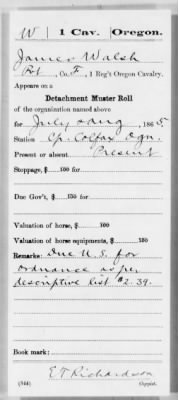 W | 1 Cav. | Oregon.
James Walsh
Pvt, Co. F, 1 Reg't Oregon Cavalry.
Appears on a
Detachment Muster Roll
of the organization named above
for July & Aug, 1865
Station Cp. Colfax Ogn.
Present or absent Present
Stoppage, $ 100 for
Due Gov't, $ 100 for
Valuation of horse, $ 100
Valuation of horse equipments, $ 100
Remarks: Due U.S. for
ordnance as per
descriptive list $2.39.
Book mark:
E T Richardson
(344) Copyist.